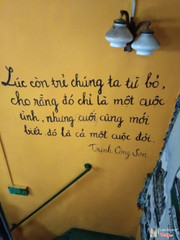 Lúc còn trẻ chúng ta từ bỏ,
cho rằng đó chỉ là một cuộc
tình, nhưng cuối cùng mới
biết đó là cả một cuộc đời.
Trịnh Công Sơn